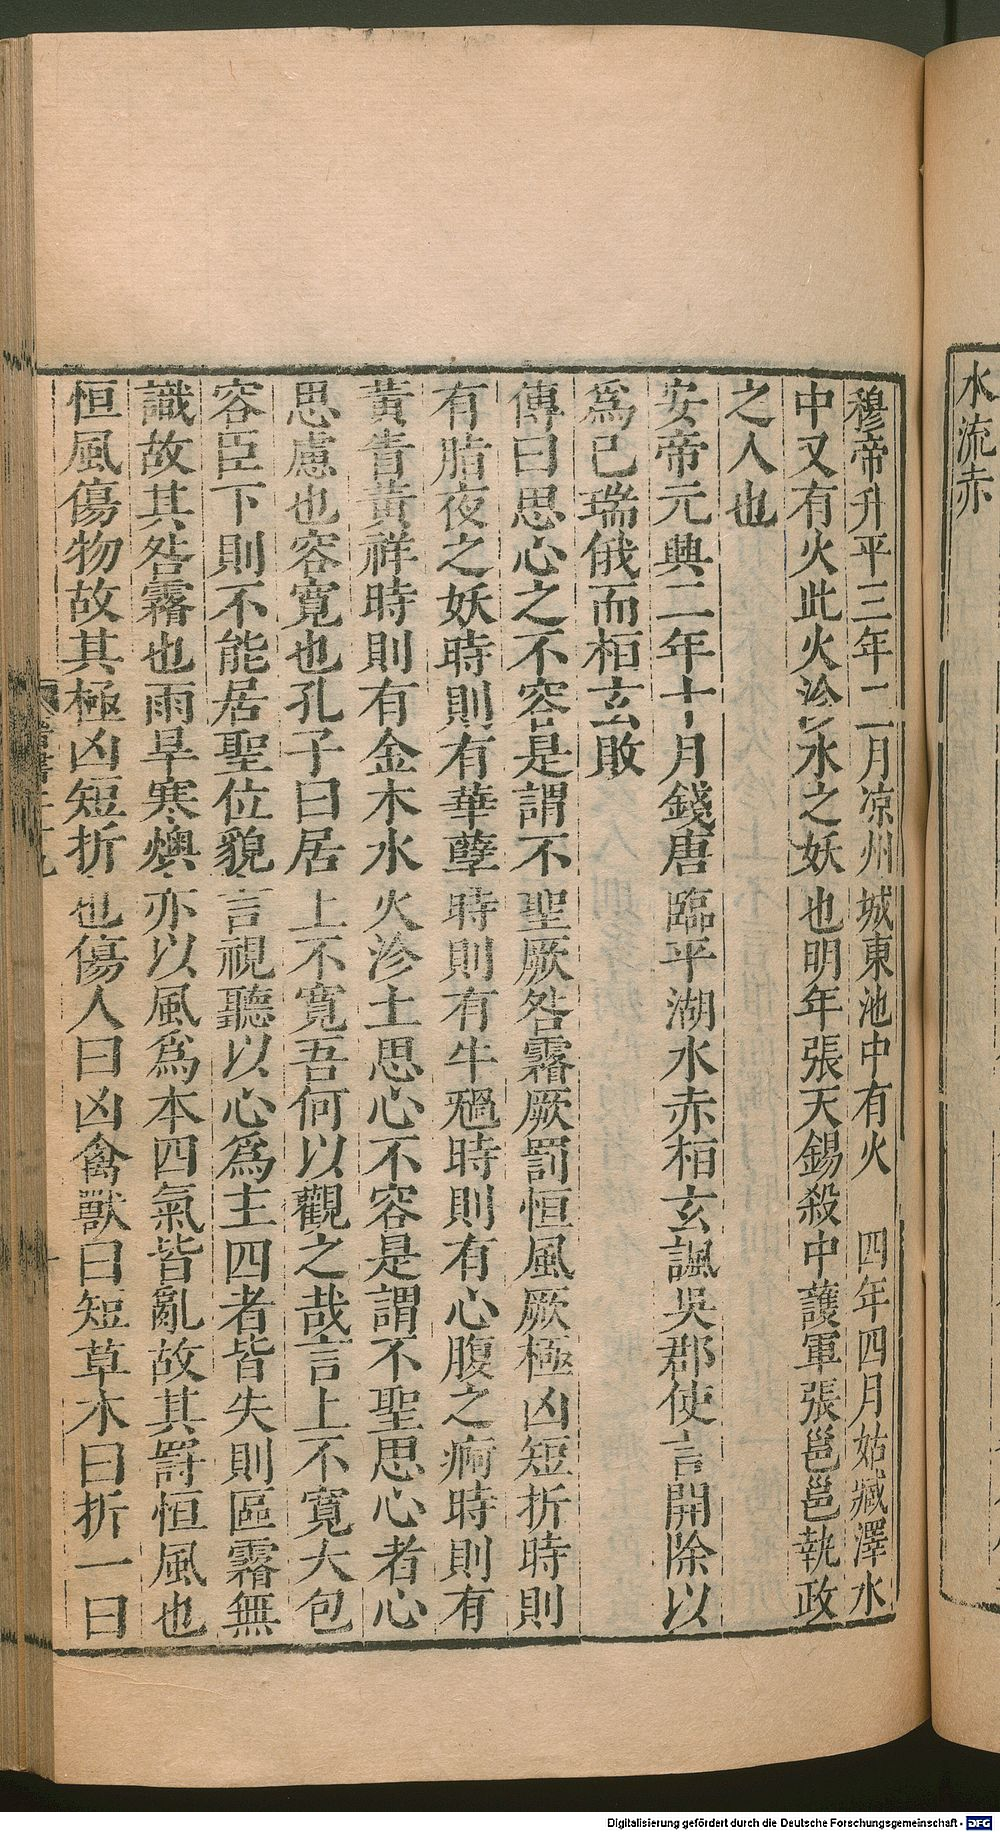 水流赤
穆帝升平三年二月凉州城東池中有火　四年四月姑臧澤水
中又有火此火沴水之妖也明年張天錫殺中護軍張邕邕執政
之人也
安帝元興二年十月錢唐臨平湖水赤桓玄諷吳郡使言開除以
爲已瑞俄而桓玄敗
傳曰思心之不容是謂不聖厥咎霿厥罰恒風厥極凶短折時則
有脂夜之妖時則有華孽時則有牛禍時則有心腹之痾時則有
黃眚黃祥時則有金木水火沴土思心不容是謂不聖思心者心
思慮也容寬也孔子曰居上不寬吾何以觀之哉言上不寬大包
容臣下則不能居聖位貌言視聽以心爲主四者皆失則區霿無
識故其咎霿也雨旱寒燠亦以風爲本四氣皆亂故其罰恒風也
恒風傷物故其極凶短折也傷人曰凶禽獸曰短草木曰折一曰
Digitalisierung gefördert durch die Deutsche Forschungsgemeinschaft - DFG